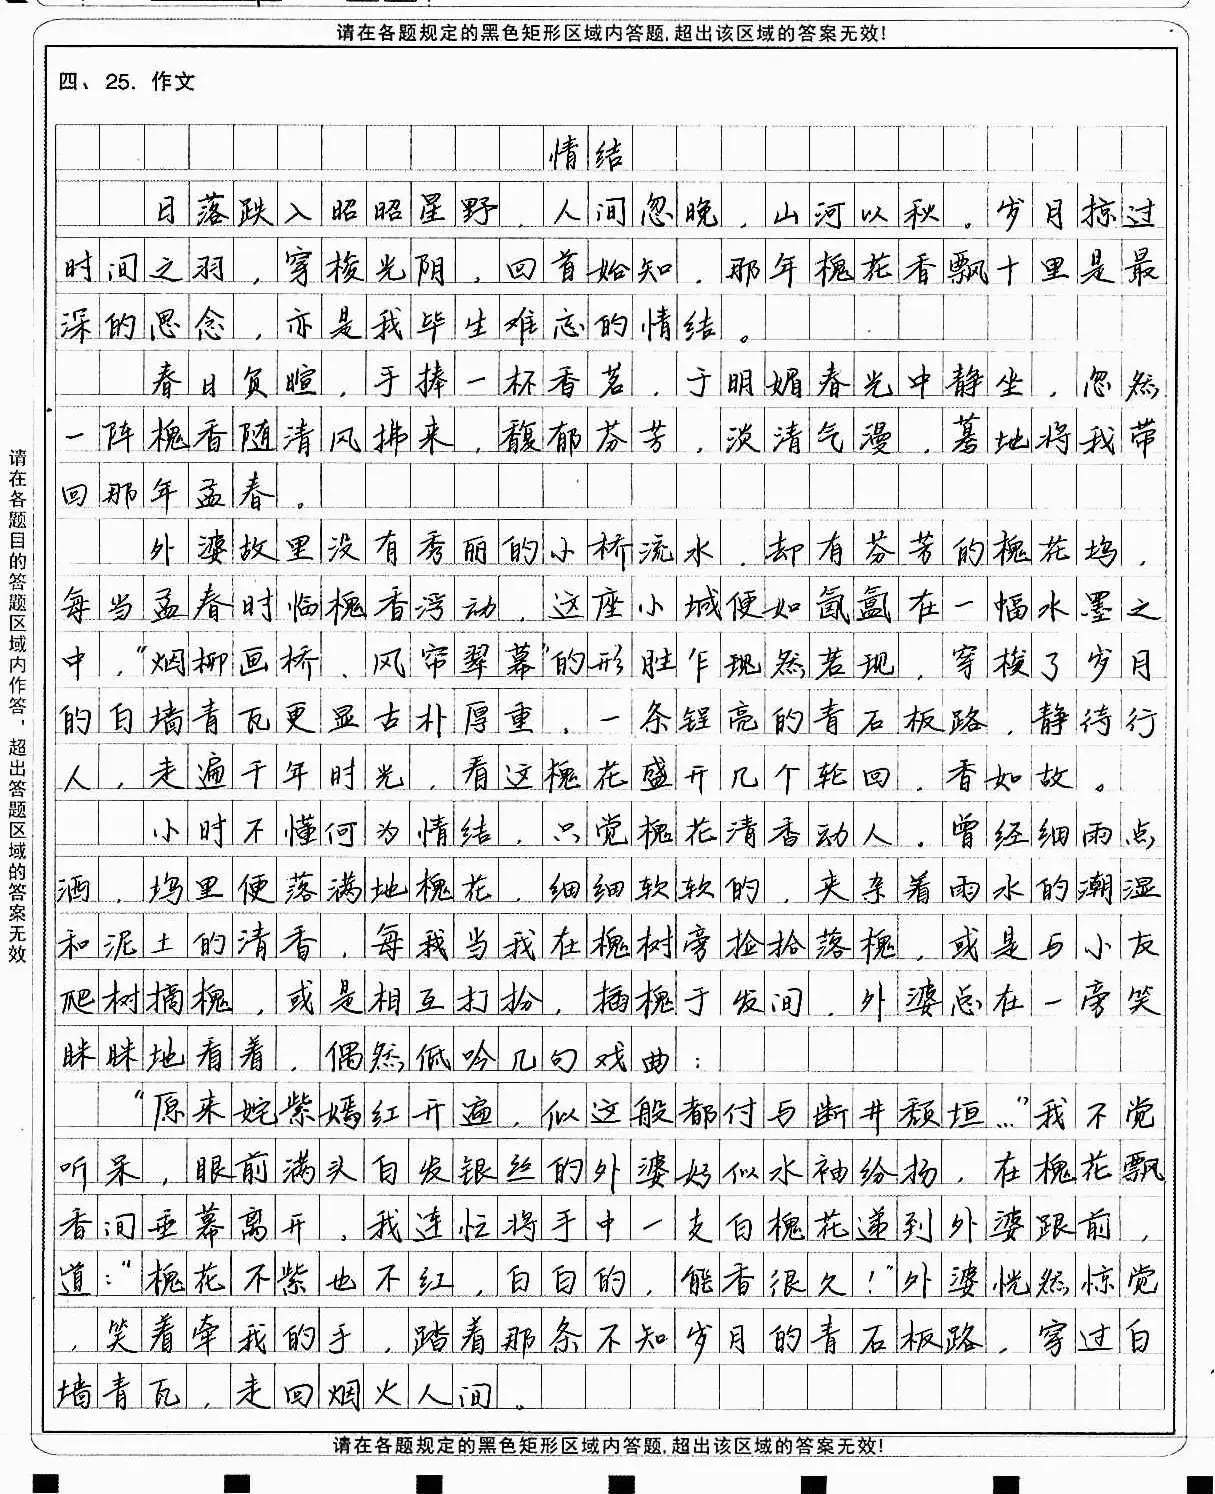 请在各题规定的黑色矩形区域内答题,超出该区域的答案无效!
四、25. 作文
情结
日落跌入昭昭星野,人间忽晚,山河以秋。岁月掠过
时间之羽,穿梭光阴,回首始知,那年槐花香飘十里是最
深的思念,亦是我毕生难忘的情结。
春日负暄,手捧一杯香茗,于明媚春光中静坐,忽然
一阵槐香随清风拂来,馥郁芬芳,淡清气漫,蓦地将我带
回那年孟春。
外婆故里没有秀丽的小桥流水,却有芬芳的槐花坞,
每当孟春时临槐香浮动,这座小城便如氤氲在一幅水墨之
中,“烟柳画桥、风帘翠幕”的形胜乍现然若现,穿梭了岁月
的白墙青瓦更显古朴厚重,一条锃亮的青石板路,静待行
人,走遍千年时光,看这槐花盛开几个轮回,香如故。
小时不懂何为情结,只觉槐花清香动人,曾经细雨点
洒,坞里便落满地槐花,细细软软的,夹杂着雨水的潮湿
和泥土的清香,每我当我在槐树旁捡拾落槐,或是与小友
爬树摘槐,或是相互打扮,插槐于发间,外婆总在一旁笑
眯眯地看着,偶然低吟几句戏曲:
“原来姹紫嫣红开遍,似这般都付与断井颓垣…”我不觉
听呆,眼前满头白发银丝的外婆好似水袖纷扬,在槐花飘
香间垂幕离开,我连忙将手中一支白槐花递到外婆跟前,
道:“槐花不紫也不红,白白的,能香很久!”外婆恍然惊觉
,笑着牵我的手,踏着那条不知岁月的青石板路,穿过白
墙青瓦,走回烟火人间。
请在各题规定的黑色矩形区域内答题,超出该区域的答案无效!
请在各题目的答题区域内作答,超出答题区域的答案无效